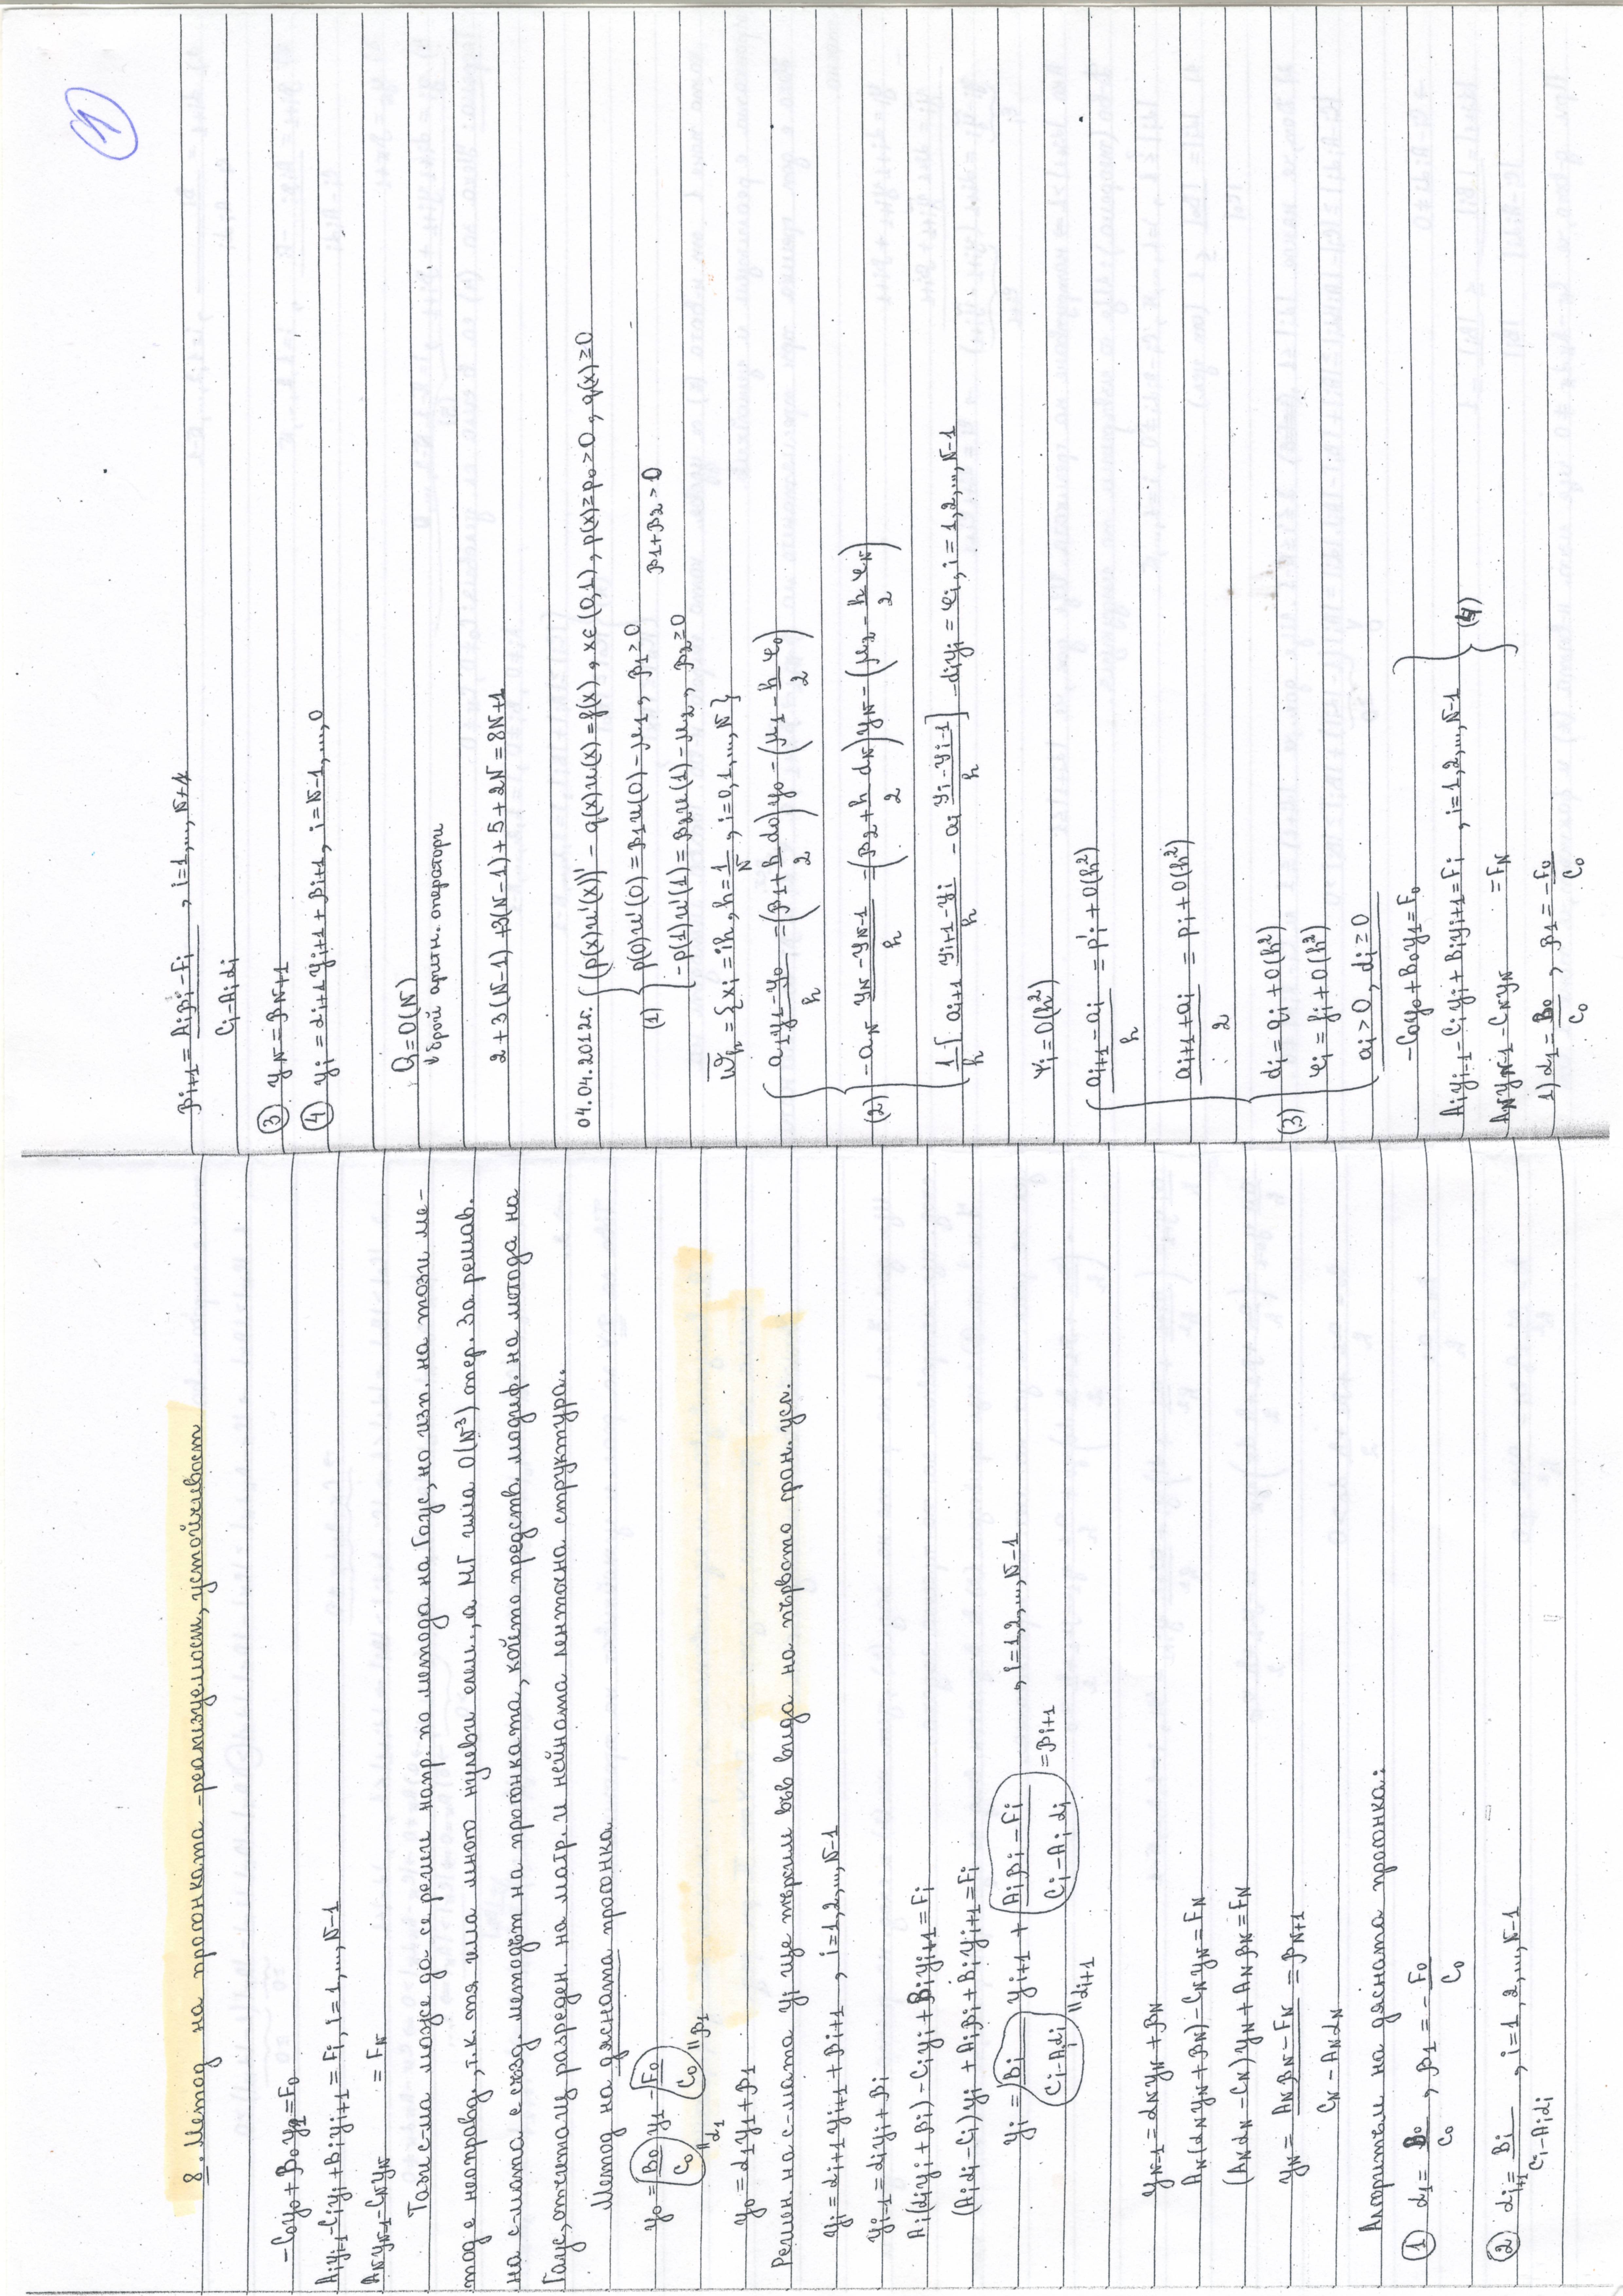 8. Метод на прогонката - реализуемост, устойчивост
-C₀y₀ + B₀y₁ = F₀
Aᵢyᵢ₋₁ - Cᵢyᵢ + Bᵢyᵢ₊₁ = Fᵢ, i = 1,...,N-1
A_N y_{N-1} - C_N y_N = F_N
Тази с-ма може да се реши напр. по метода на Гаус, но изп. на този ме-
тод е неоправд., т.к. тя има много нулеви елем., а МГ има O(N³) опер. За решав.
на с-мата е създ. методът на прогонката, който представ. модиф. на метода на
Гаус, отчитащ разреден. на матр. и нейната лентична структура.
Метод на дясната прогонка.
y₀ = B₀/C₀ y₁ - F₀/C₀
"α₁ "β₁
y₀ = α₁y₁ + β₁
Решен. на с-мата yᵢ ще търсим във вида на първото гран. усл.
yᵢ = αᵢ₊₁yᵢ₊₁ + βᵢ₊₁ , i = 1,2,...,N-1
yᵢ₋₁ = αᵢyᵢ + βᵢ
Aᵢ(αᵢyᵢ + βᵢ) - Cᵢyᵢ + Bᵢyᵢ₊₁ = Fᵢ
(Aᵢαᵢ - Cᵢ)yᵢ + Aᵢβᵢ + Bᵢyᵢ₊₁ = Fᵢ
yᵢ = Bᵢ/(Cᵢ - Aᵢαᵢ) yᵢ₊₁ + (Aᵢβᵢ - Fᵢ)/(Cᵢ - Aᵢαᵢ) = βᵢ₊₁ , i = 1,2,...,N-1
"αᵢ₊₁
y_{N-1} = α_N y_N + β_N
A_N(α_N y_N + β_N) - C_N y_N = F_N
(A_N α_N - C_N)y_N + A_N β_N = F_N
y_N = (A_N β_N - F_N)/(C_N - A_N α_N) = β_{N+1}
Алгоритъм на дясната прогонка:
① α₁ = B₀/C₀ , β₁ = -F₀/C₀
② αᵢ₊₁ = Bᵢ/(Cᵢ - Aᵢαᵢ) , i = 1,2,...,N-1
①
βᵢ₊₁ = (Aᵢβᵢ - Fᵢ)/(Cᵢ - Aᵢαᵢ) , i = 1,...,N
③ y_N = β_{N+1}
④ yᵢ = αᵢ₊₁yᵢ₊₁ + βᵢ₊₁, i = N-1,...,0
Q = O(N)
брой аритм. оператори
2 + 3(N-1) + 3(N-1) + 5 + 2N = 8N + 1
04.04.2012г.
(1) { (p(x)u'(x))' - q(x)u(x) = f(x), x ∈ (0,1), p(x) ≥ p₀ > 0, q(x) ≥ 0
p(0)u'(0) = β₁u(0) - μ₁, β₁ ≥ 0
β₁ + β₂ > 0
-p(1)u'(1) = β₂u(1) - μ₂, β₂ ≥ 0
ω̄_h = {xᵢ = ih, h = 1/N, i = 0,1,...,N}
(2) { a₁ (y₁ - y₀)/h = (β₁ + h/2 d₀)y₀ - (μ₁ - h/2 φ₀)
-a_N (y_N - y_{N-1})/h = (β₂ + h/2 d_N)y_N - (μ₂ - h/2 φ_N)
1/h [aᵢ₊₁ (yᵢ₊₁ - yᵢ)/h - aᵢ (yᵢ - yᵢ₋₁)/h] - dᵢyᵢ = φᵢ, i = 1,2,...,N-1
ψᵢ = O(h²)
(3) { (aᵢ₊₁ - aᵢ)/h = p'ᵢ + O(h²)
(aᵢ₊₁ + aᵢ)/2 = pᵢ + O(h²)
dᵢ = qᵢ + O(h²)
φᵢ = fᵢ + O(h²)
aᵢ > 0, dᵢ ≥ 0
-C₀y₀ + B₀y₁ = F₀
Aᵢyᵢ₋₁ - Cᵢyᵢ + Bᵢyᵢ₊₁ = Fᵢ , i = 1,2,...,N-1 } (4)
A_N y_{N-1} - C_N y_N = F_N
1) α₁ = B₀/C₀ , β₁ = -F₀/C₀